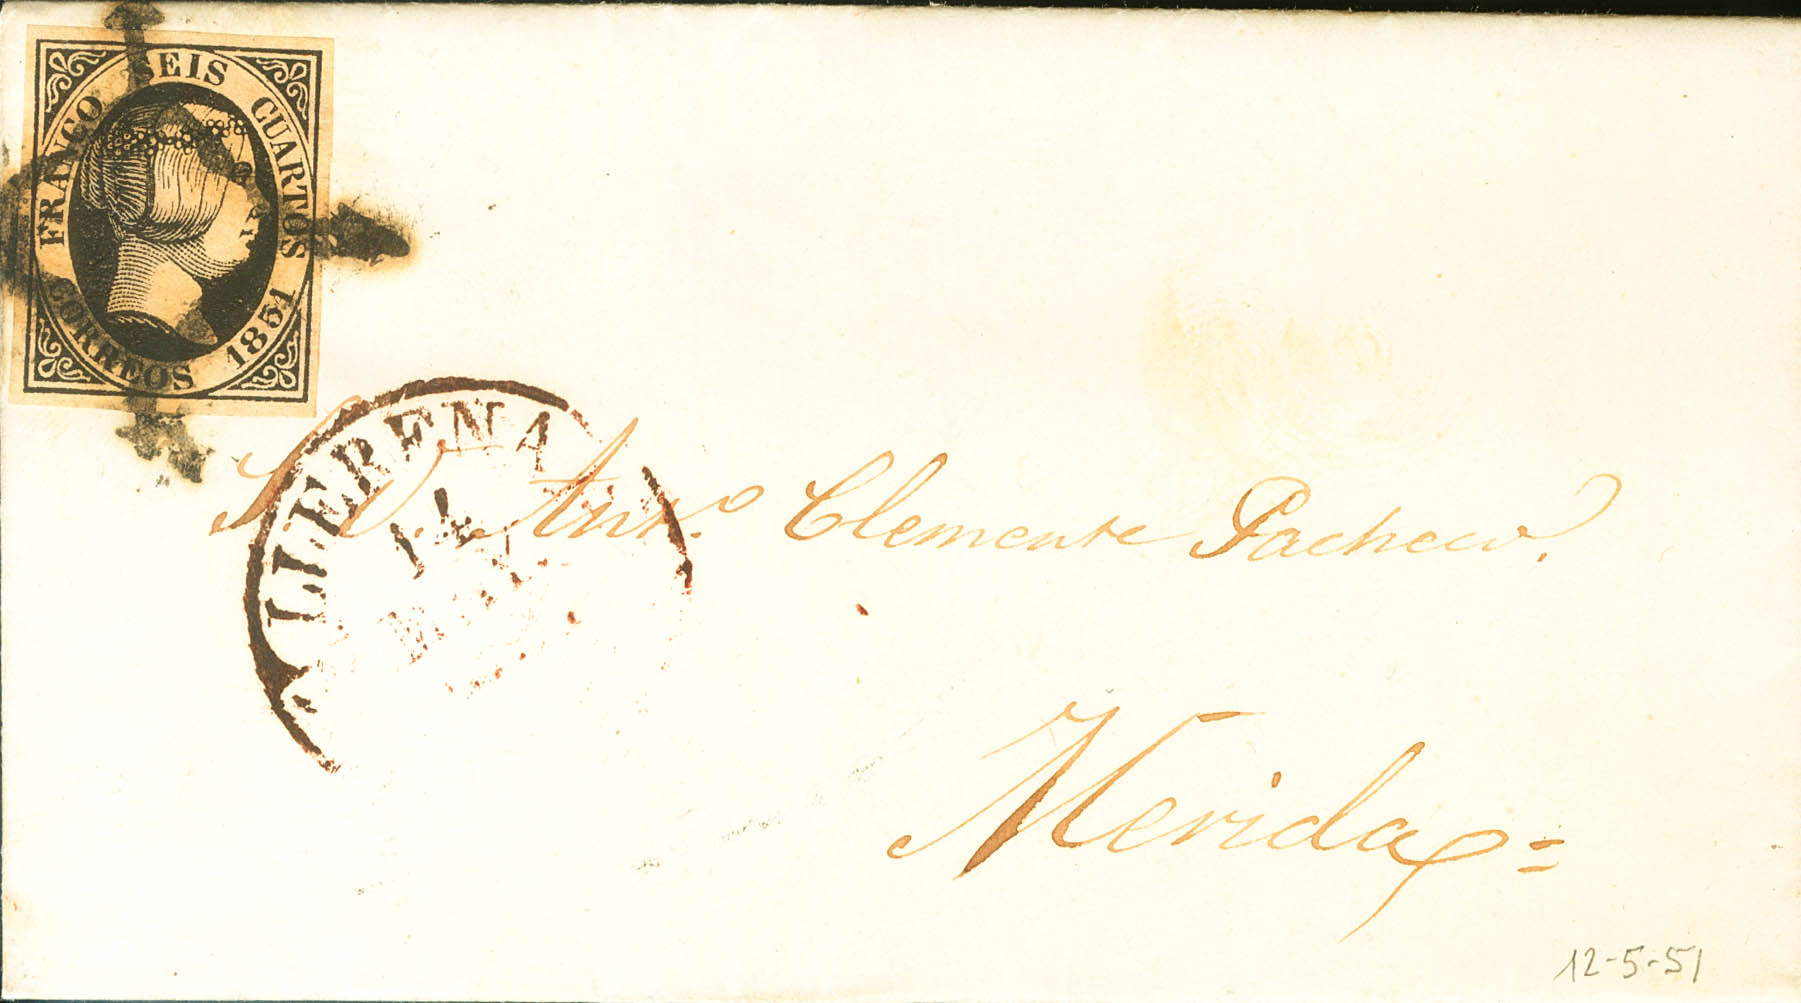 FRANCO SEIS CUARTOS
CORREOS 1851
LLERENA
14
S. D. Anto. Clemente Pacheco.
Merida=
12-5-51